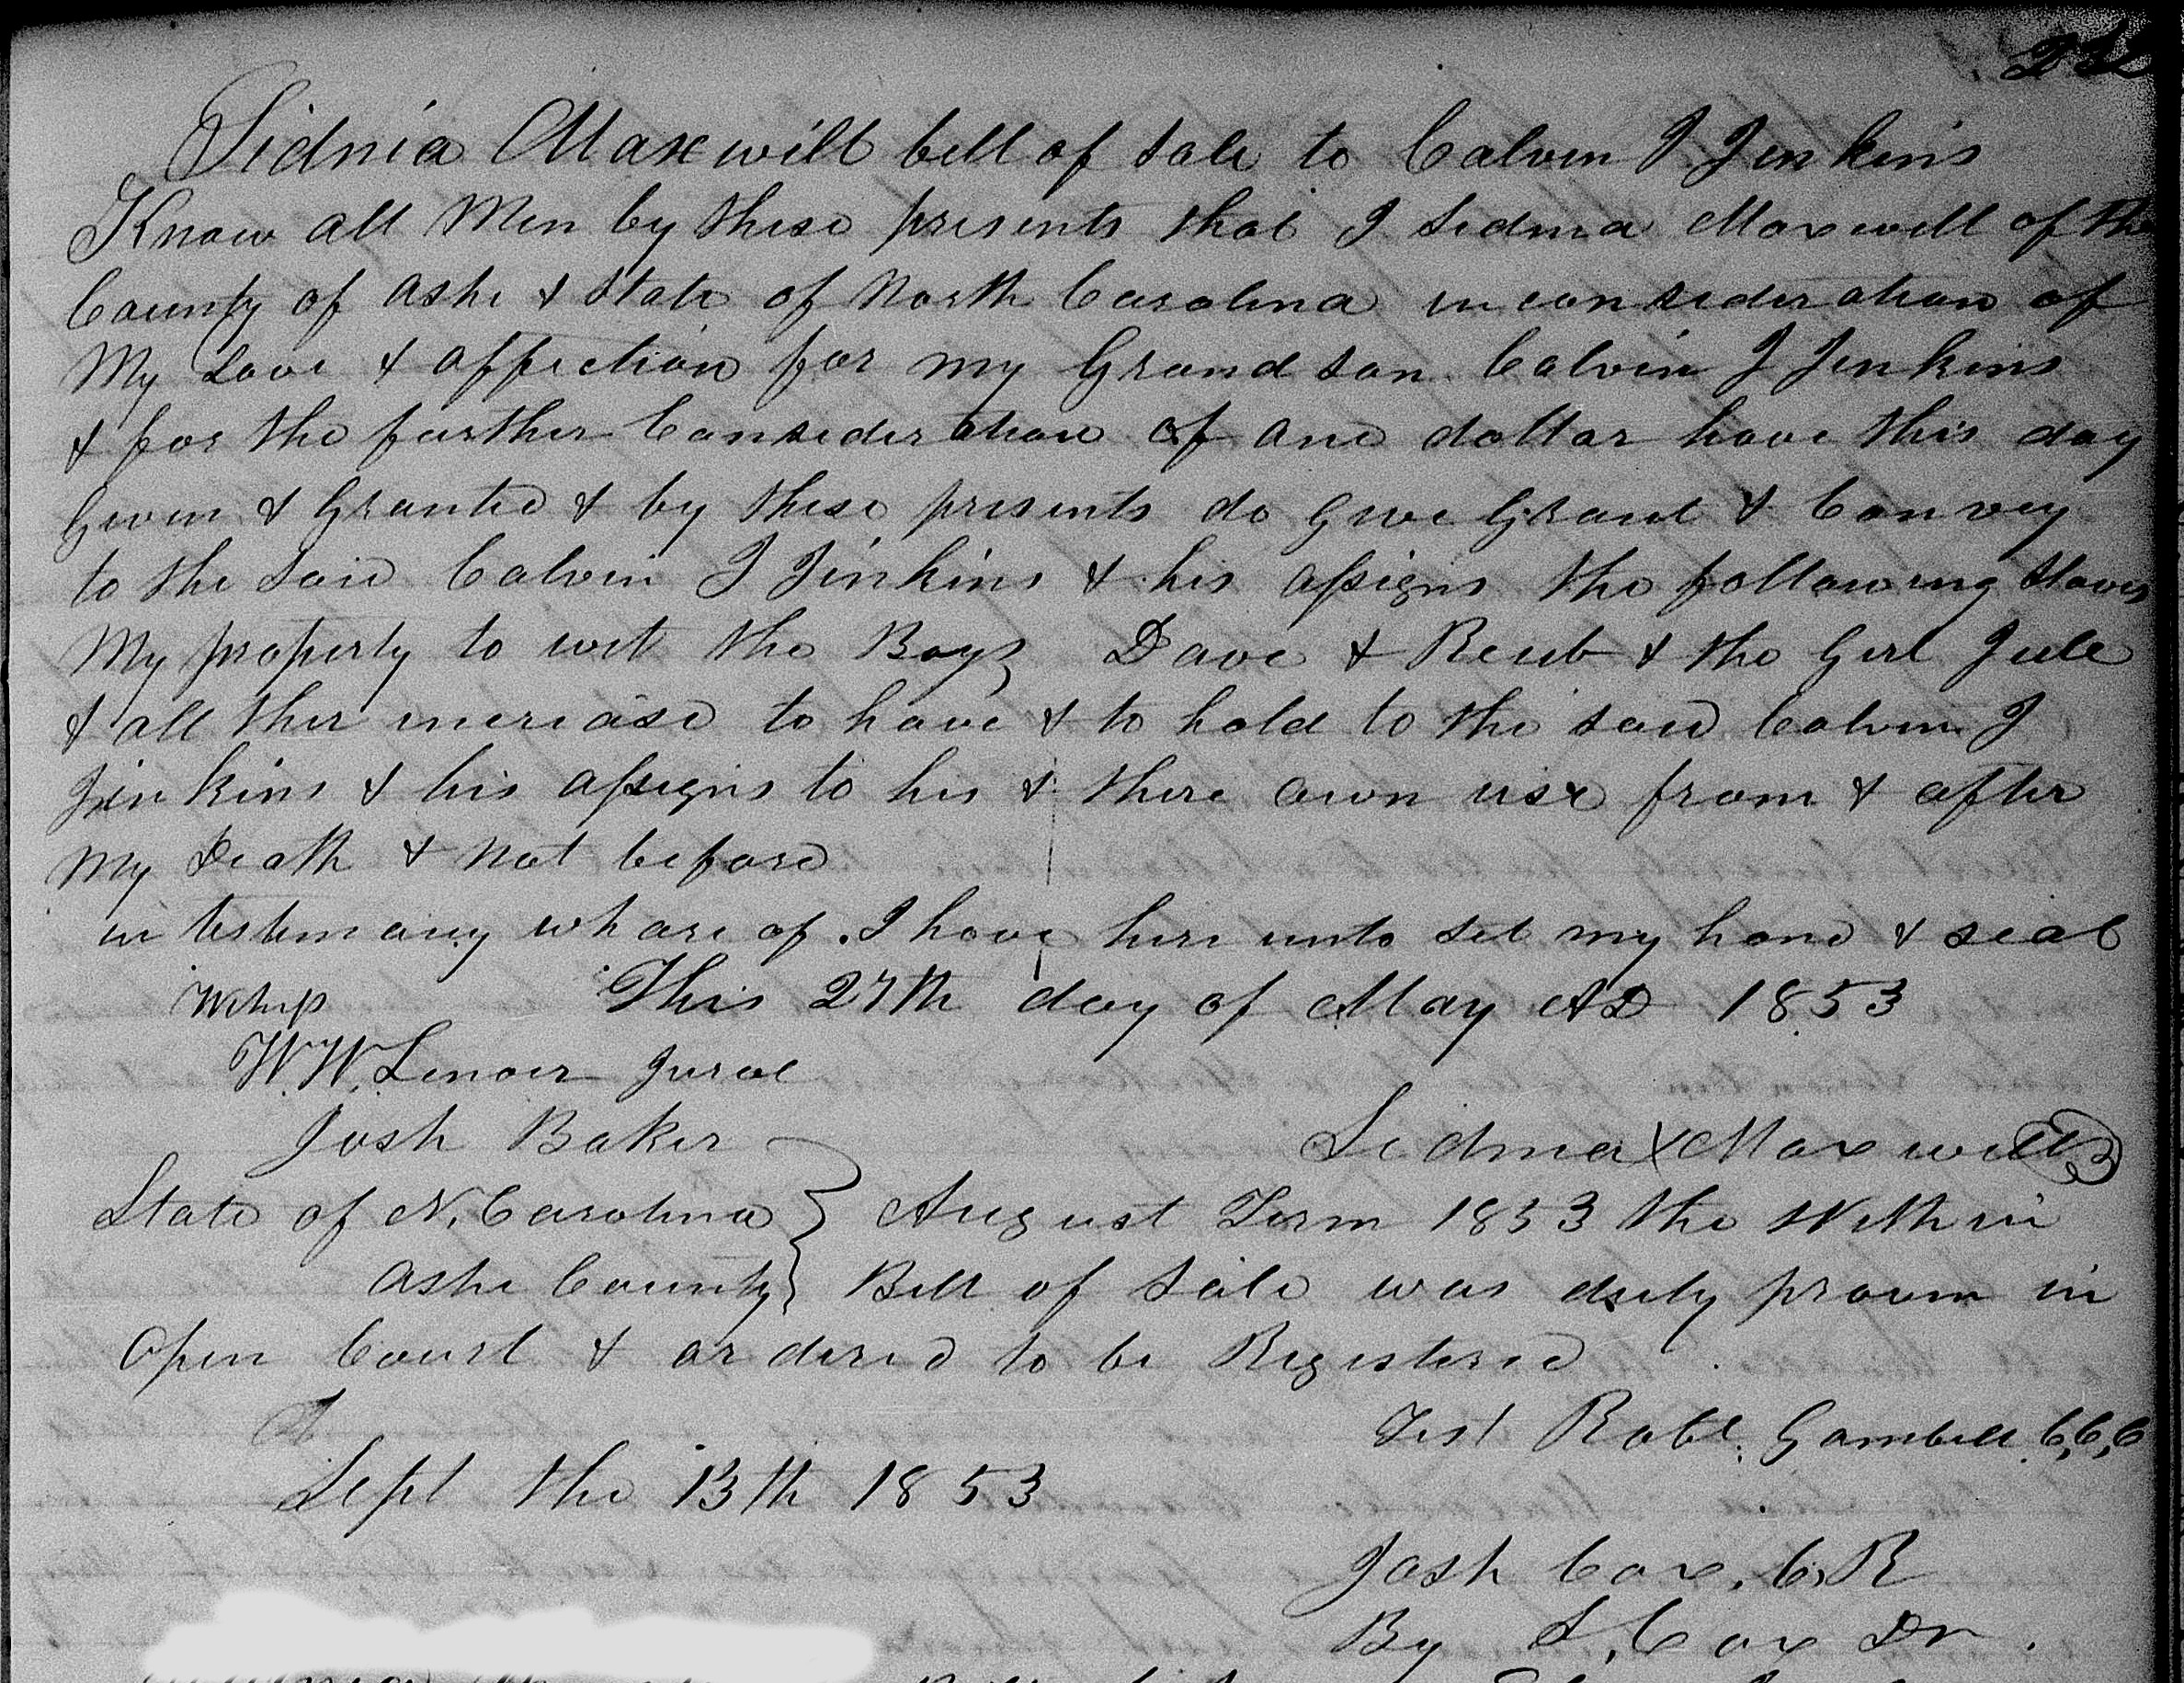 Sidnia Maxwill bill of Sale to Calvin J Jenkins
Know all Men by these presents that I Sidnia Maxwell of the
County of Ashe & State of North Carolina in consideration of
My Love & affection for my Grand son Calvin J Jenkins
& for the further Consideration of one dollar have this day
Given & Granted & by these presents do give Grant & Convey
to the Said Calvin J Jinkins & his assigns the following Slaves
My property to wit the Boys Dave & Reub & the Girl Jule
& all ther increase to have & to hold to the said Calvin J
Jinkins & his assigns to his & there own use from & after
My Death & not before
in testimony whare of I have here unto set my hand & seal
This 27th day of May AD 1853
Witness
W. W. Lenoir Jurat
Josh Baker
Sidnia X Maxwell
State of N. Carolina } August Term 1853 the Within
Ashe County } Bill of Sale was duly proven in
Open Court & ordered to be Registered
Test Robt. Gambill C,C,C
Sept the 13th 1853
Josh Cox. C. R
By S. Cox Dr.